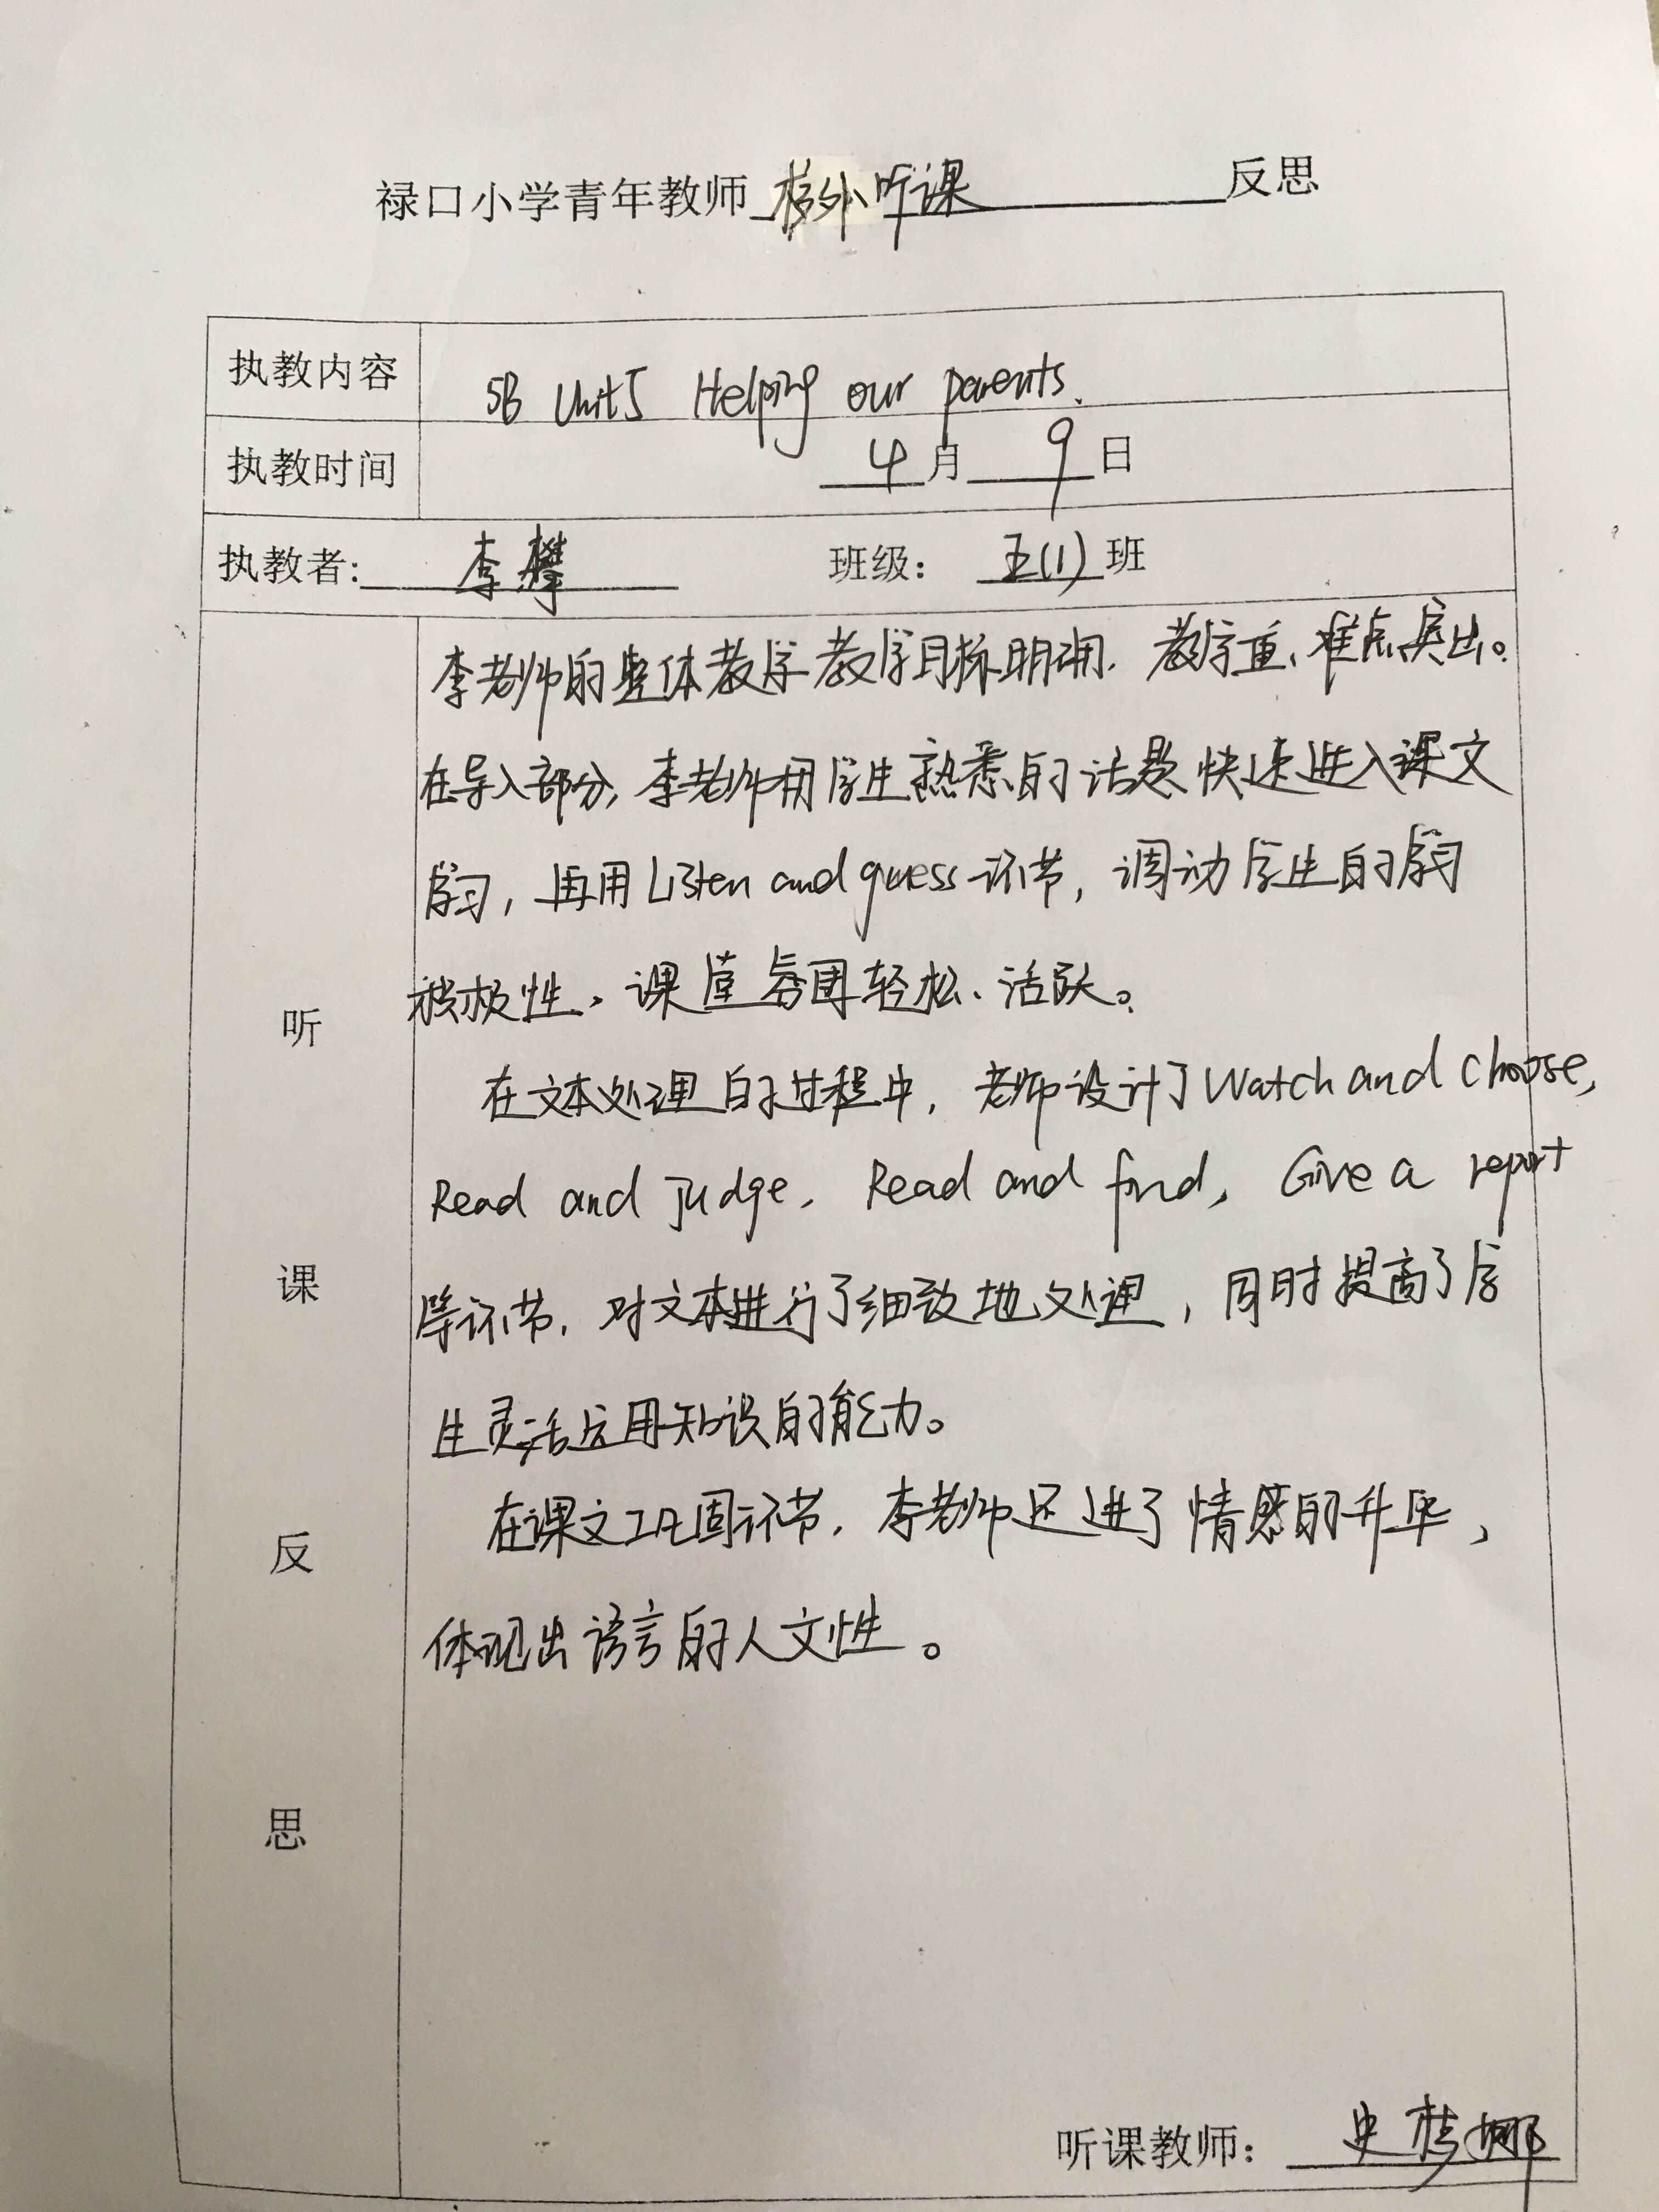 禄口小学青年教师 校外听课 反思
执教内容 5B Unit5 Helping our parents.
执教时间 4月9日
执教者: 李攀 班级: 五(1)班
听课反思
李老师的整体教学教学目标明确,教学重、难点突出。
在导入部分,李老师用学生熟悉的话题快速进入课文
学习,再用Listen and guess环节,调动学生的学习
积极性,课堂氛围轻松、活跃。
在文本处理的过程中,老师设计了Watch and choose,
Read and judge, Read and find, Give a report
等环节,对文本进行了细致地处理,同时提高了学
生灵活运用知识的能力。
在课文巩固环节,李老师还进了情感的升华,
体现出语言的人文性。
听课教师: 史梦娜